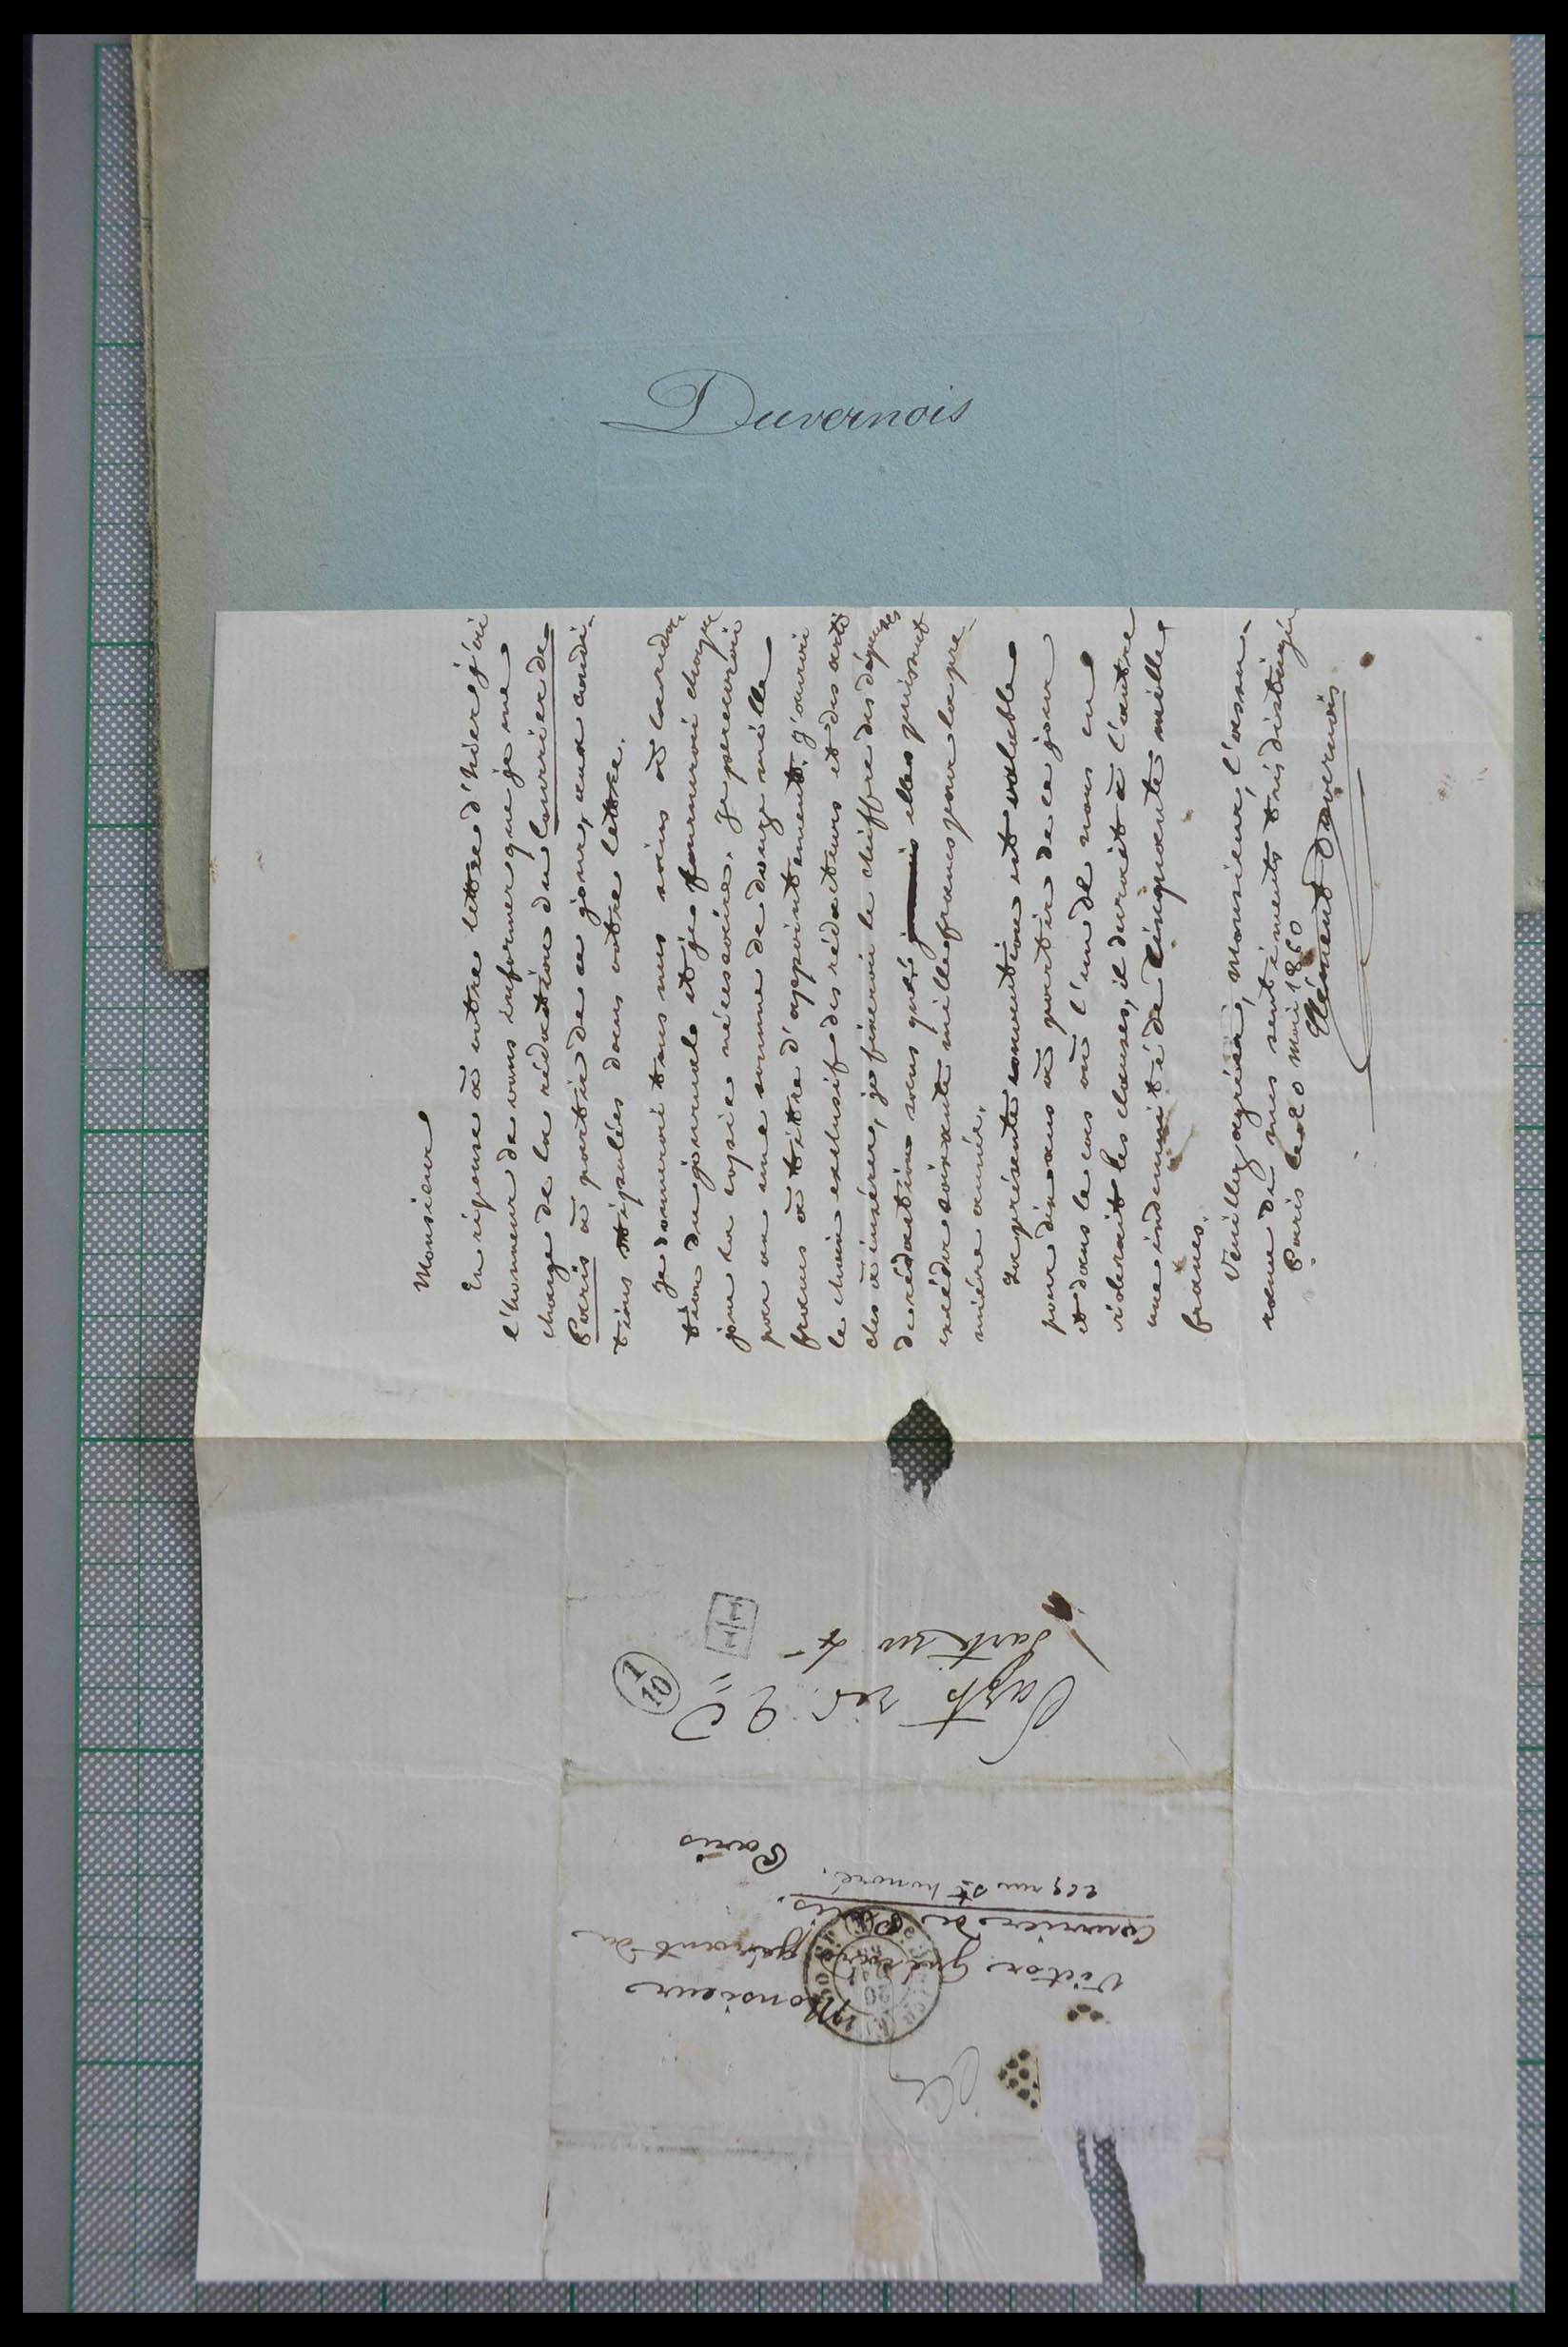 Duvernois
Monsieur
En réponse à votre lettre d'hier j'ai
l'honneur de vous informer que je me
charge de la rédaction du Courrier de
Paris à partir de ce jour, aux condi-
tions stipulées dans votre lettre.
Je donnerai tous mes soins à la rédac
tion du journal et je fournirai chaque
jour la copie nécessaire. Je percevrai
par an une somme de douze mille
francs à titre d'appointements. J'aurai
le choix exclusif des rédacteurs et des arti
cles à insérer, je fixerai le chiffre des dépenses
de rédaction sans que elles puissent
excéder soixante mille francs pour la pre-
mière année.
La présente convention est valable
pour dix ans à partir de ce jour
et dans le cas où l'un de nous en
violerait les clauses, il devrait à l'autre
une indemnité de cinquante mille
francs.
Veuillez agréer, Monsieur, l'assu-
rance de mes sentiments très distingués
Paris le 20 Mai 1860
Clément Duvernois
1/10
Monsieur
Victor gérant du
Courrier de Paris.
rue St honoré.
Paris